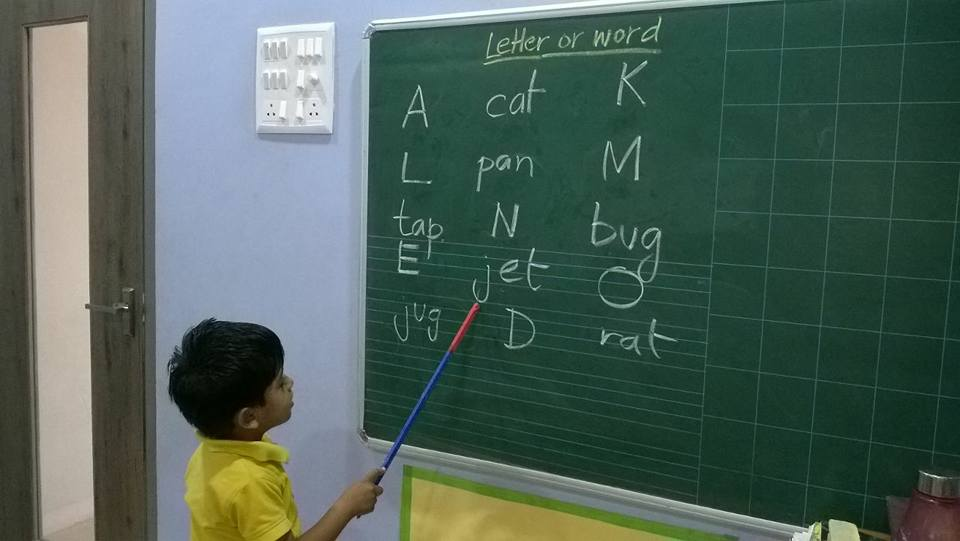 Letter or word
A cat K
L pan M
tap N bug
E jet O
jug D rat